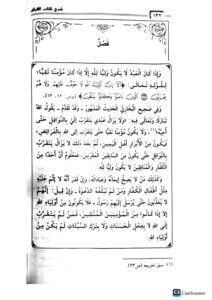 ١٣٢
شرح كتاب الفرقان
فَصْلٌ
وَإِذَا كَانَ الْعَبْدُ لَا يَكُونُ وَلِيًّا لِلَّهِ إِلَّا إِذَا كَانَ مُؤْمِنًا تَقِيًّا؛
لِقَوْلِهِ تَعَالَى: ﴿أَلَا إِنَّ أَوْلِيَاءَ اللَّهِ لَا خَوْفٌ عَلَيْهِمْ وَلَا هُمْ
يَحْزَنُونَ الَّذِينَ آمَنُوا وَكَانُوا يَتَّقُونَ﴾
وَفِي صَحِيحِ الْبُخَارِيِّ الْحَدِيثُ الْمَشْهُورُ - وَقَدْ تَقَدَّمَ - يَقُولُ اللَّهُ
تَبَارَكَ وَتَعَالَى فِيهِ: «وَلَا يَزَالُ عَبْدِي يَتَقَرَّبُ إِلَيَّ بِالنَّوَافِلِ حَتَّى
أُحِبَّهُ»(١). وَلَا يَكُونُ مُؤْمِنًا تَقِيًّا حَتَّى يَتَقَرَّبَ إِلَى اللَّهِ بِالْفَرَائِضِ،
فَيَكُونَ مِنَ الْأَبْرَارِ أَهْلِ الْيَمِينِ، ثُمَّ بَعْدَ ذَلِكَ لَا يَزَالُ يَتَقَرَّبُ
بِالنَّوَافِلِ حَتَّى يَكُونَ مِنَ السَّابِقِينَ الْمُقَرَّبِينَ، فَمَعْلُومٌ أَنَّ أَحَدًا مِنَ
الْكُفَّارِ وَالْمُنَافِقِينَ لَا يَكُونُ وَلِيًّا لِلَّهِ.
وَكَذَلِكَ مَنْ لَا يَصِحُّ إِيمَانُهُ وَعِبَادَاتُهُ، وَإِنْ قُدِّرَ أَنَّهُ لَا إِثْمَ عَلَيْهِ
مِثْلُ أَطْفَالِ الْكُفَّارِ وَمَنْ لَمْ تَبْلُغْهُ الدَّعْوَةُ، - وَإِنْ قِيلَ: إِنَّهُمْ
لَا يُعَذَّبُونَ حَتَّى يُرْسَلَ إِلَيْهِمْ رَسُولٌ - فَلَا يَكُونُونَ مِنْ أَوْلِيَاءِ اللَّهِ
إِلَّا إِذَا كَانُوا مِنَ الْمُؤْمِنِينَ الْمُتَّقِينَ، فَمَنْ لَمْ يَتَقَرَّبْ
إِلَى اللَّهِ لَا بِفِعْلِ الْحَسَنَاتِ وَلَا بِتَرْكِ السَّيِّئَاتِ لَمْ يَكُنْ مِنْ
أَوْلِيَاءِ اللَّهِ.
(١) سبق تخريجه
CS CamScanner